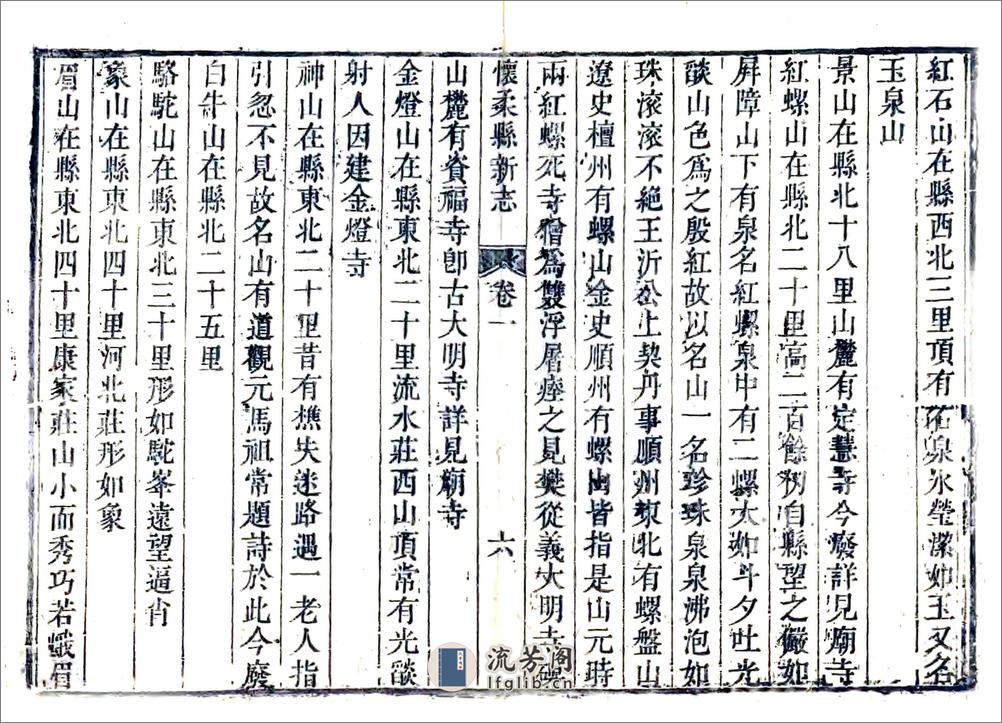 紅石山在縣西北三里頂有石泉水瑩潔如玉又名
玉泉山
景山在縣北十八里山麓有定慧寺今廢詳見廟寺
紅螺山在縣北二十里高二百餘仞自縣望之儼如
屏障山下有泉名紅螺泉中有二螺大如斗夕吐光
燄山色爲之殷紅故以名山一名珍珠泉泉沸泡如
珠滚滚不絶王沂公上契丹事順州東北有螺盤山
遼史檀州有螺山金史順州有螺山皆指是山元時
兩紅螺死寺僧爲雙浮屠瘞之見樊從義大明寺碑
懷柔縣新志
卷一
六
山麓有資福寺卽古大明寺詳見廟寺
金燈山在縣東北二十里流水莊西山頂常有光燄
射人因建金燈寺
神山在縣東北二十里昔有樵失迷路遇一老人指
引忽不見故名山有道觀元馬祖常題詩於此今廢
白牛山在縣北二十五里
駱駝山在縣東北三十里形如駝峯遠望逼肖
象山在縣東北四十里河北莊形如象
眉山在縣東北四十里康家莊山小而秀巧若蛾眉
流芳閣
lfglib.cn